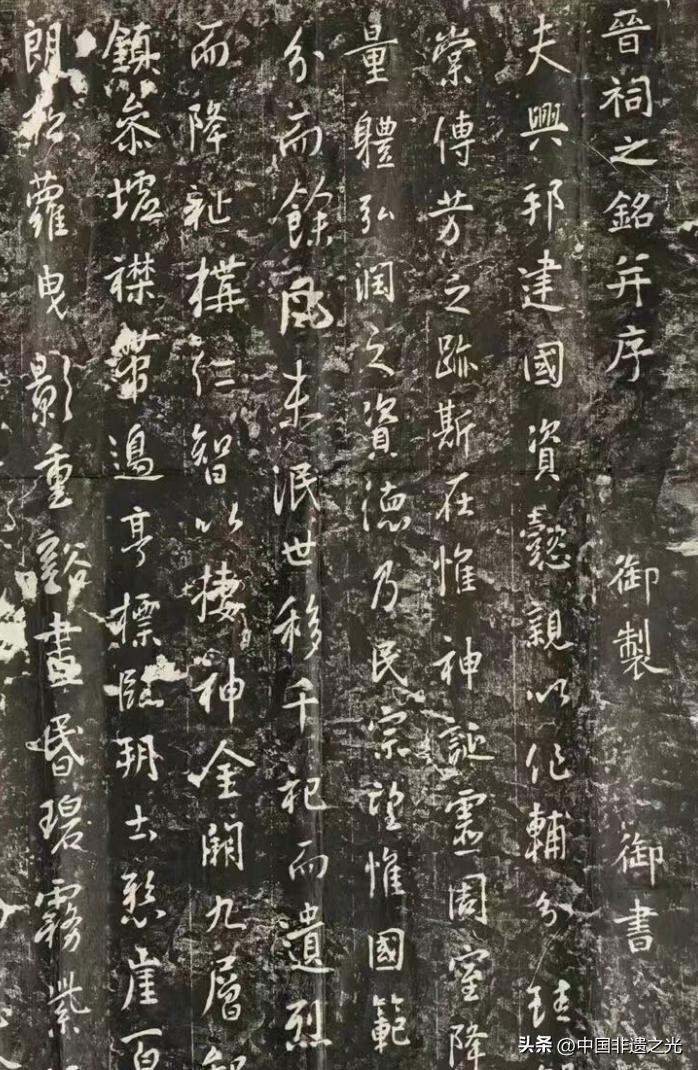 晉祠之銘并序 御製 御書
夫興邦建國資懿親以作輔分珪
棠傳芳之跡斯在惟神誕靈周室降
量體弘潤之資德乃民宗望惟國範
分而餘風未泯世移千祀而遺烈
而降祉構仁智以棲神金闕九層
鎮參墟襟帶邊亭標臨朔土懸崖百
朗松蘿曳影重谿晝昏碧霧紫
头条 @中国非遗之光